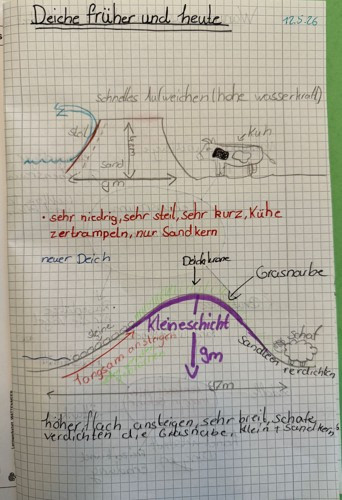 Deiche früher und heute
12.5.26
schnelles Aufweichen (hohe wasserkraft)
steil
4m
Kuh
Sand
9m
• sehr niedrig, sehr steil, sehr kurz, Kühe
zertrampeln, nur Sandkern
neuer Deich
Deichkrone
Grasnabe
Kleineschicht
langsam ansteigen
9m
Schaf
Sandkern
verdichten
höher, flach ansteigen, sehr breit, Schafe
verdichten die Grasnabe, Klein + Sandkern